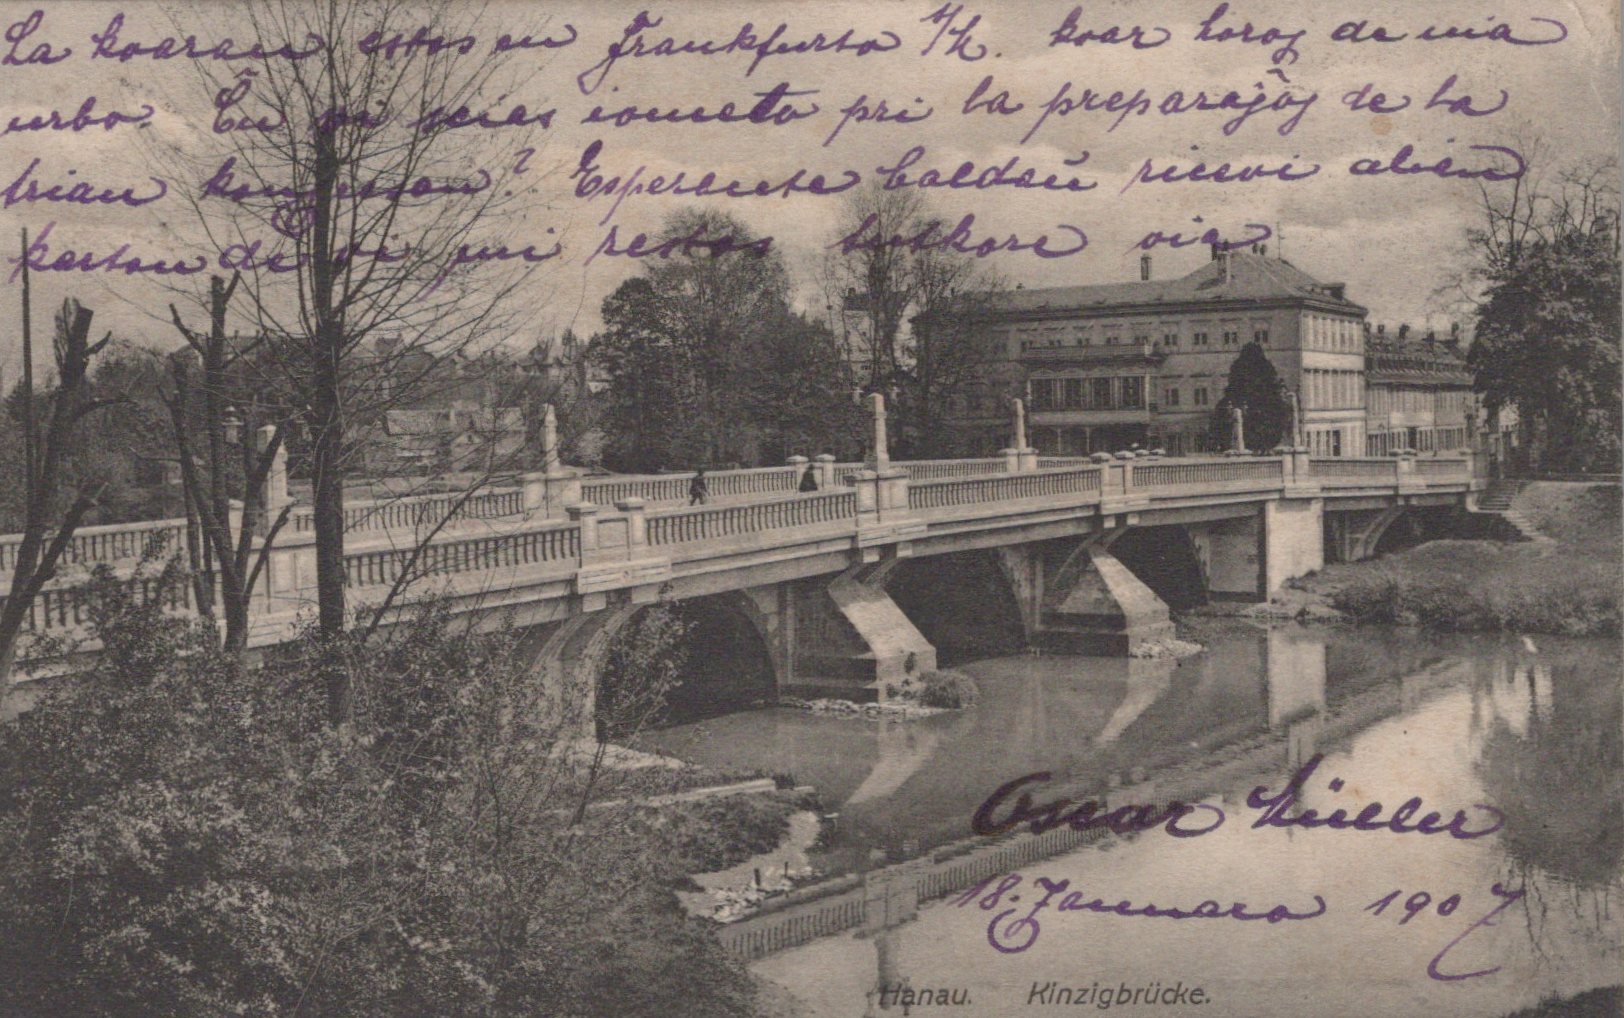 La kvaran estos en Frankfurto a/M. kvar horoj de mia
urbo. Ĉu vi scias iometo pri la preparaĵoj de la
trian kongreson? Esperante baldaŭ ricevi alian
karton de vi mi restas tutkore via
Oscar Müller
18. Januaro 1907
Hanau. Kinzigbrücke.